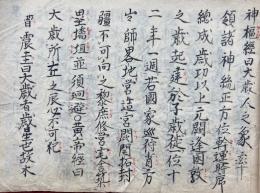 神樞經曰大歲人之象率
領諸神統正方位斡運時序
總成歲功以上元閼逢困敦
之歲起建於子歲徙一位十
二年一週若國家巡狩省方
出師畧地營造宮闕開拓封
疆不可向之黎庶修營宅舍築
壘墻垣並須迴避〇黃帝經曰
大歲所在之辰必不可犯
曾震圭曰大歲者歲星也故木